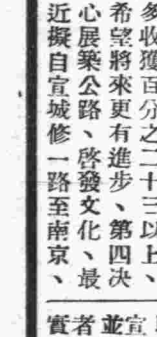 多收獲百分之二十三以上、
希望將來更有進步、第四决
心展築公路、啓發文化、最
近擬自宣城修一路至南京、
宣
並
者
實